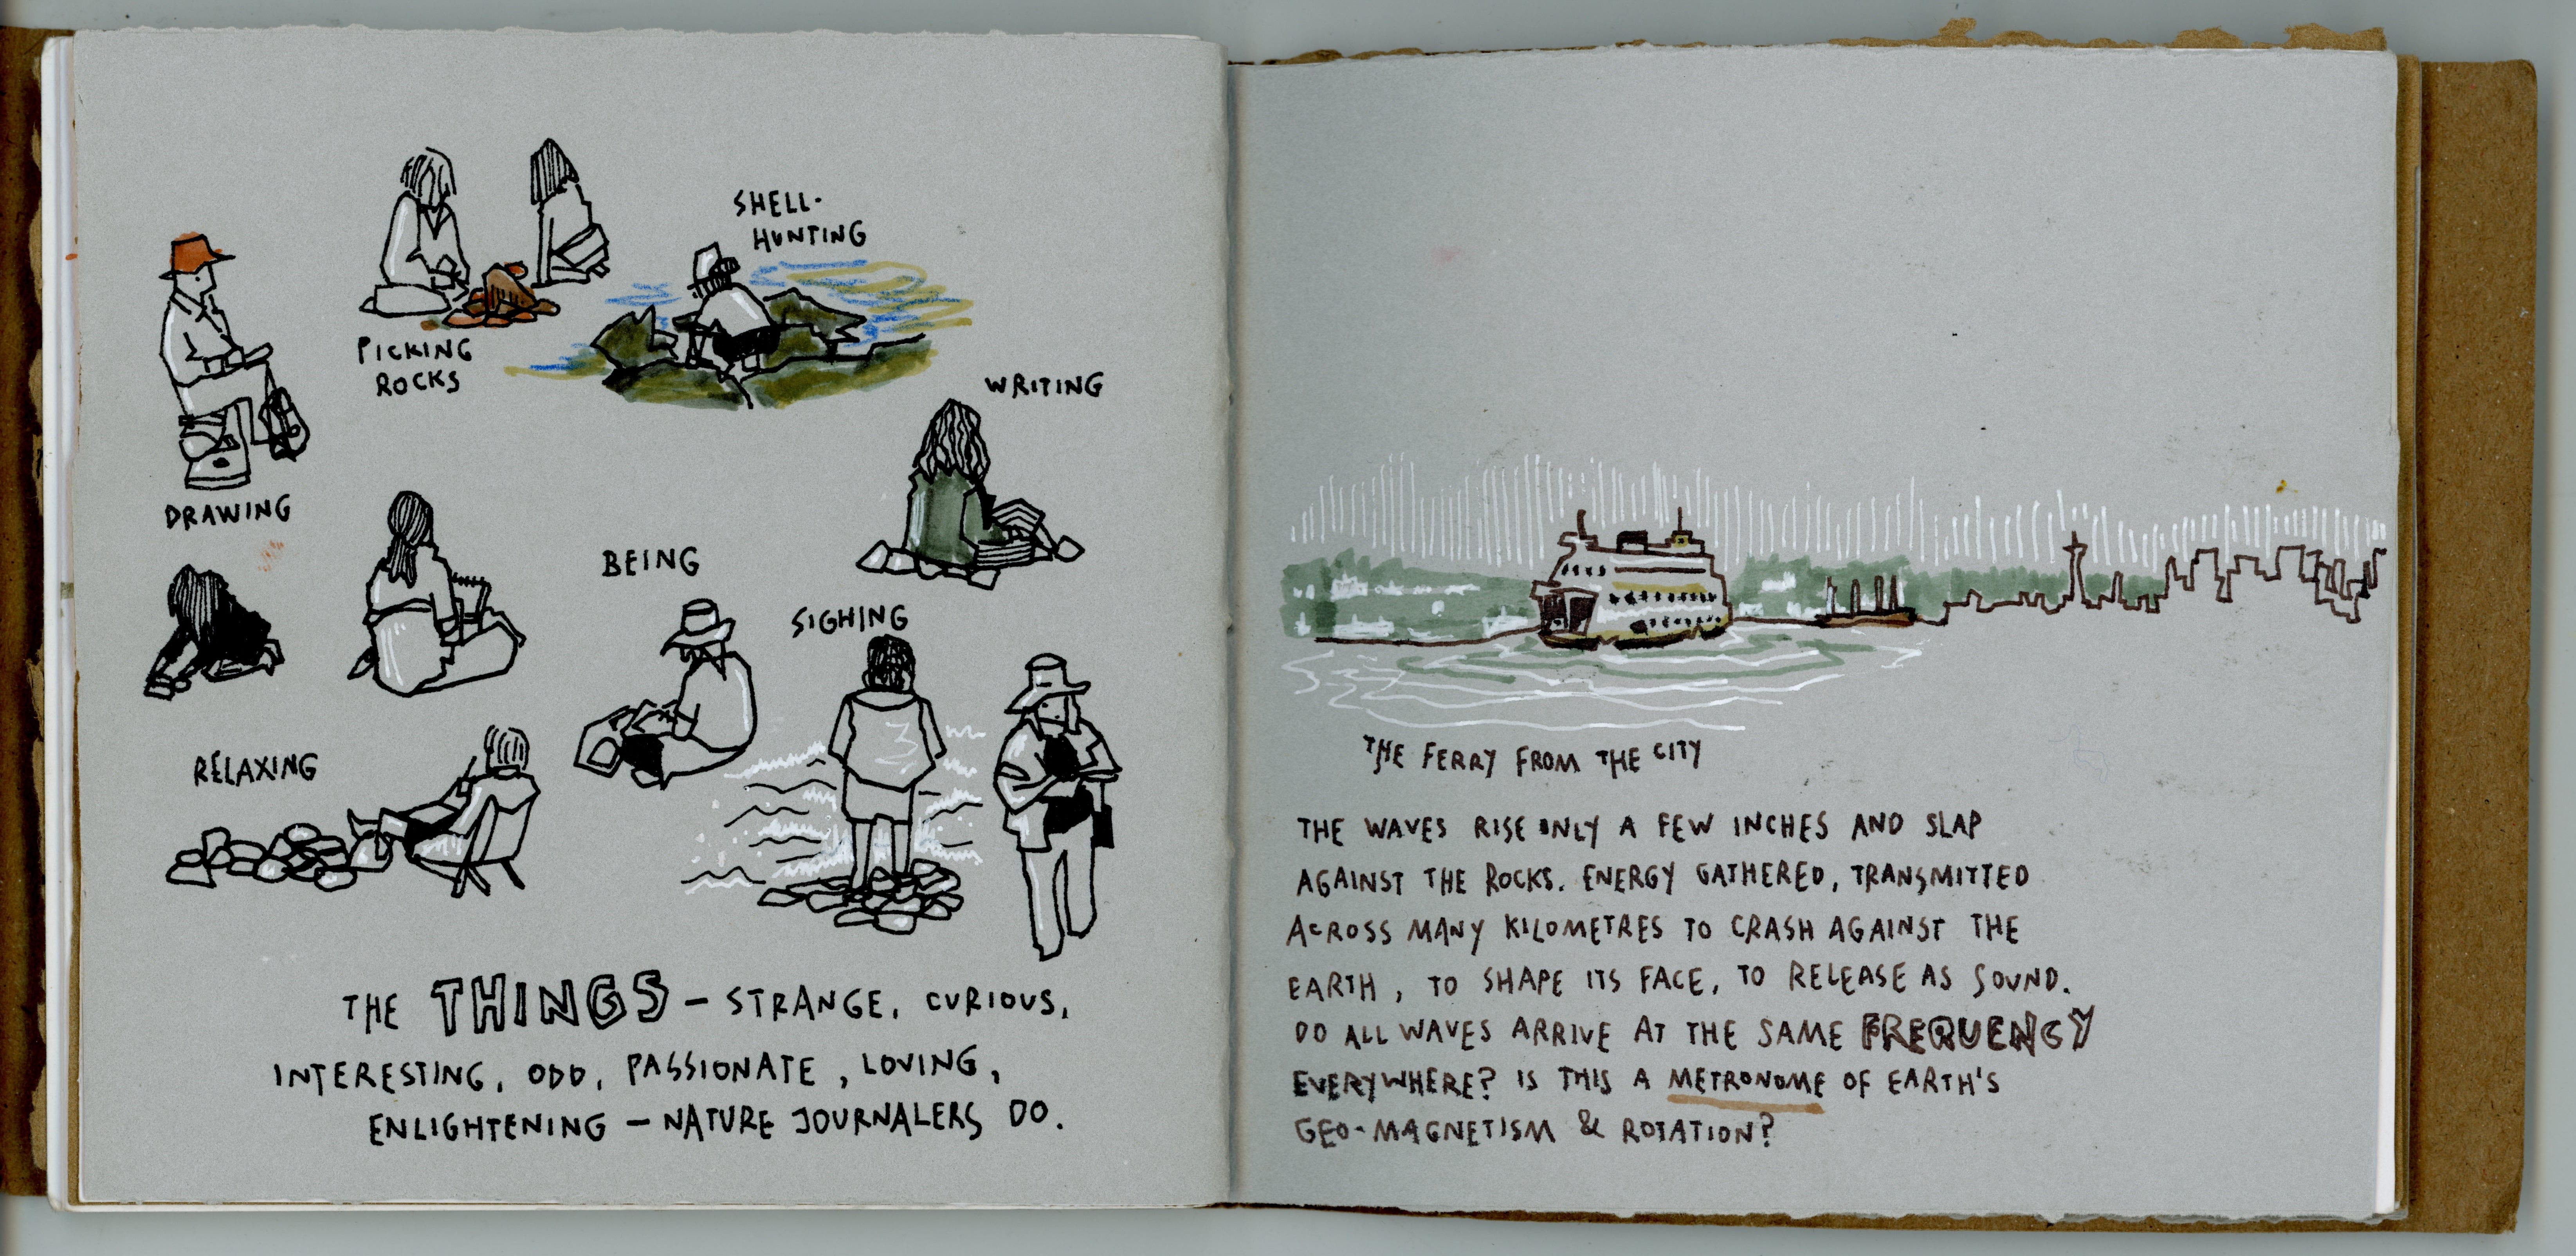 SHELL-
HUNTING
PICKING
ROCKS
WRITING
DRAWING
BEING
SIGHING
RELAXING
THE THINGS – STRANGE, CURIOUS,
INTERESTING, ODD, PASSIONATE, LOVING,
ENLIGHTENING – NATURE JOURNALERS DO.
THE FERRY FROM THE CITY
THE WAVES RISE ONLY A FEW INCHES AND SLAP
AGAINST THE ROCKS. ENERGY GATHERED, TRANSMITTED
ACROSS MANY KILOMETRES TO CRASH AGAINST THE
EARTH, TO SHAPE ITS FACE, TO RELEASE AS SOUND.
DO ALL WAVES ARRIVE AT THE SAME FREQUENCY
EVERYWHERE? IS THIS A METRONOME OF EARTH'S
GEO-MAGNETISM & ROTATION?